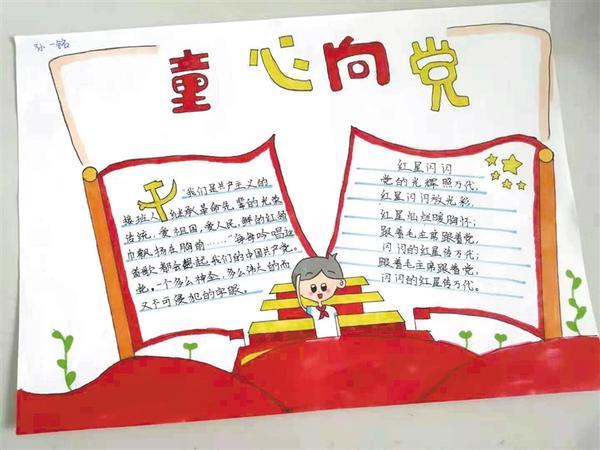 孙一铭
童心向党
"我们是共产主义的
接班人，继承革命先辈的光荣
传统，爱祖国，爱人民，鲜的红领
巾飘扬在胸前……"每每吟唱这
首歌都会想起我们的中国共产党。
他，一个多么神圣，多么伟大的而
又不可侵犯的字眼。
红星闪闪
党的光辉照万代，
红星闪闪放光彩，
红星灿烂暖胸怀；
跟着毛主席跟着党，
闪闪的红星传万代；
跟着毛主席跟着党，
闪闪的红星传万代。